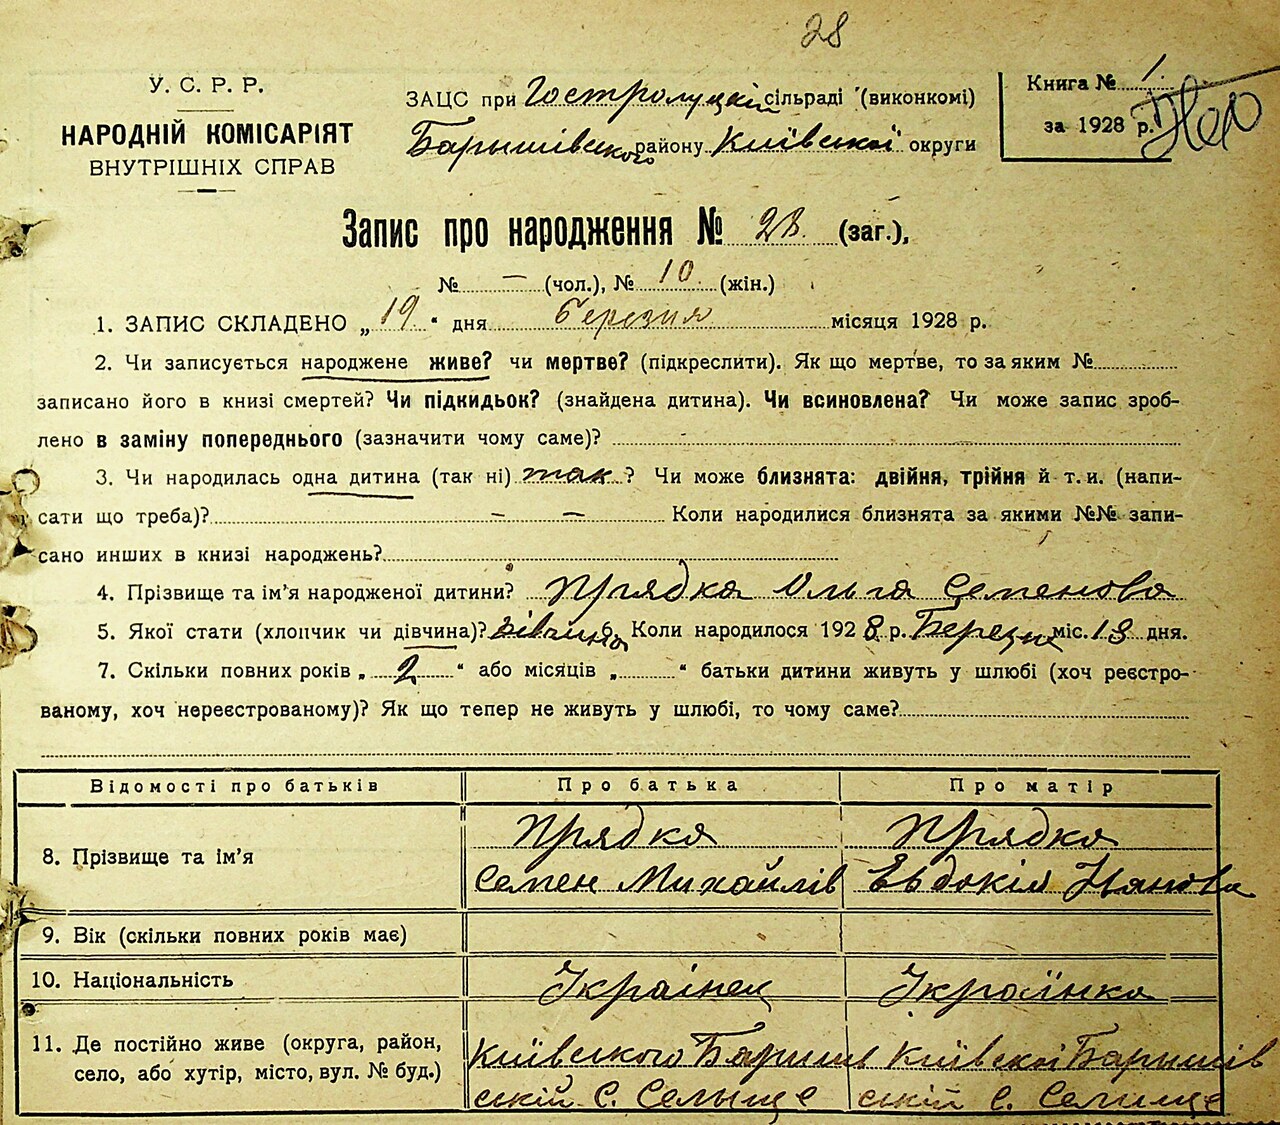 28
У. С. Р. Р.
НАРОДНІЙ КОМІСАРІЯТ
ВНУТРІШНІХ СПРАВ
ЗАЦС при Гостролуцкій сільраді (виконкомі)
Барышівського району Київської округи
Книга № 1
за 1928 р.
Запис про народження № 28 (заг.),
№ — (чол.), № 10 (жін.)
1. ЗАПИС СКЛАДЕНО „19“ дня березня місяця 1928 р.
2. Чи записується народжене живе? чи мертве? (підкреслити). Як що мертве, то за яким №
записано його в книзі смертей? Чи підкидьок? (знайдена дитина). Чи всиновлена? Чи може запис зроб-
лено в заміну попереднього (зазначити чому саме)?
3. Чи народилась одна дитина (так ні) так ? Чи може близнята: двійня, трійня й т. и. (напи-
сати що треба)? — — Коли народилися близнята за якими №№ запи-
сано инших в книзі народжень?
4. Прізвище та ім'я народженої дитини? Прядка Ольга Семенова
5. Якої стати (хлопчик чи дівчина)? дівчина 6. Коли народилося 1928 р. Березня міс. 13 дня.
7. Скільки повних років „2“ або місяців „ “ батьки дитини живуть у шлюбі (хоч реєстро-
ваному, хоч нереєстрованому)? Як що тепер не живуть у шлюбі, то чому саме?
Відомості про батьків Про батька Про матір
8. Прізвище та ім'я Прядка Прядка
Семен Михайлів Евдокія Іванова
9. Вік (скільки повних років має)
10. Національність Українец Українка
11. Де постійно живе (округа, район, Київського Барышів Київскої Барышів
село, або хутір, місто, вул. № буд.) ській С. Селыще ській С. Селище